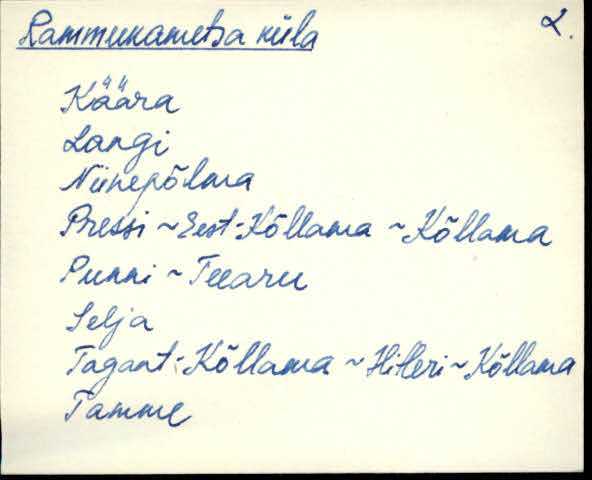 Rammukametsa küla 2.
Käära
Langi
Niinepõlma
Pressi ~ Eest-Kõllama ~ Kõllama
Punni ~ Teearu
Selja
Tagant-Kõllama ~ Hitleri ~ Kõllama
Tamme